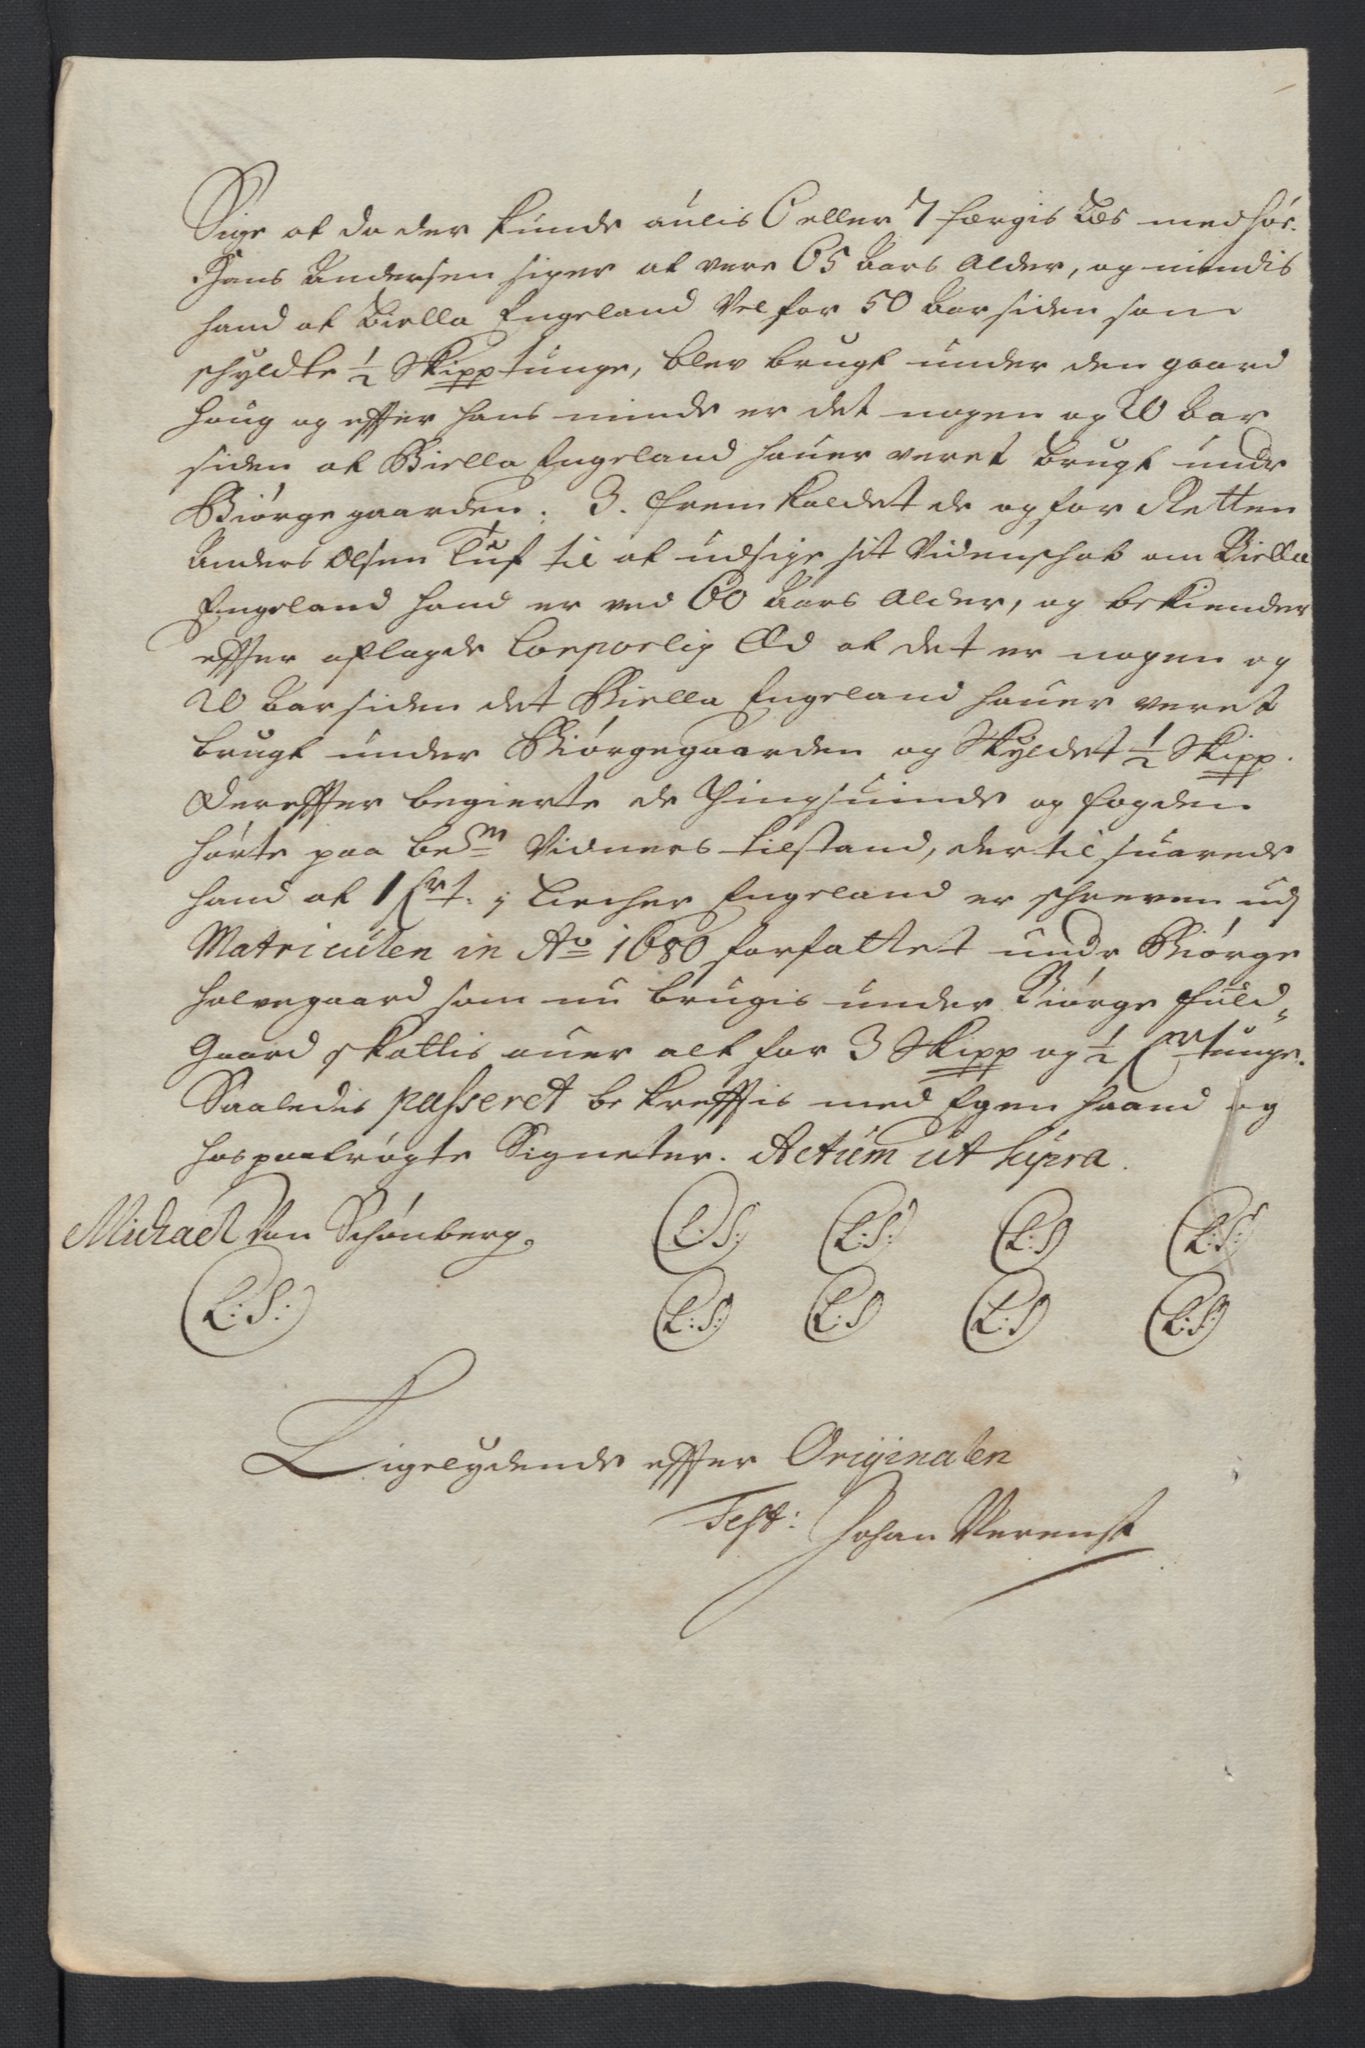 Sige at da der kunde aulis 6 eller 7 færgis Læs med høe.
Hans Andersen siger at vere 65 Aars Alder, og mindis
hand at Biella Engeland Vel for 50 Aar siden som
schyldte ½ Skipptunge, blev brugt under den gaard
Houg og efter hans minde er det nogen og 20 Aar
siden at Biella Engeland hauer veret brugt undr
Biørge gaarden. 3. fremkaldet de og for Retten
Anders Olsen Tuf til at udsige sit Videnschab om Biella
Engeland hand er ved 60 Aars Alder, og bekiender
effter aflagde Corporlig Æd at det er nogen og
20 Aar siden det Biella Engeland hauer veret
brugt under Biørgegaarden og Skyldet ½ Skipp.
Dereffter begierte de Tingsuinde og fogden
hørte paa bem Vidners tilstand, der til suarede
hand at 1 Hrt. i Lircher Engeland er schreven udj
Matriculen in Ao 1680 forfattet undr Biørge
halvegaard som nu brugis under Biørge fuld,,
Gaard skattis ouer alt for 3 Skipp og ½ Hrtunge.
Saaledis passeret bekrefftis med Egen haand og
hospaatrögte Signeter. Actum ut supra.
Michael Von Schönberg.
(L:S:) (L:S:) (L:S) (L:S:)
(L:S:) (L:S:) (L:S) (L:S) (L:S:)
Ligelydende effter Originalen
Test: Johan Verenst